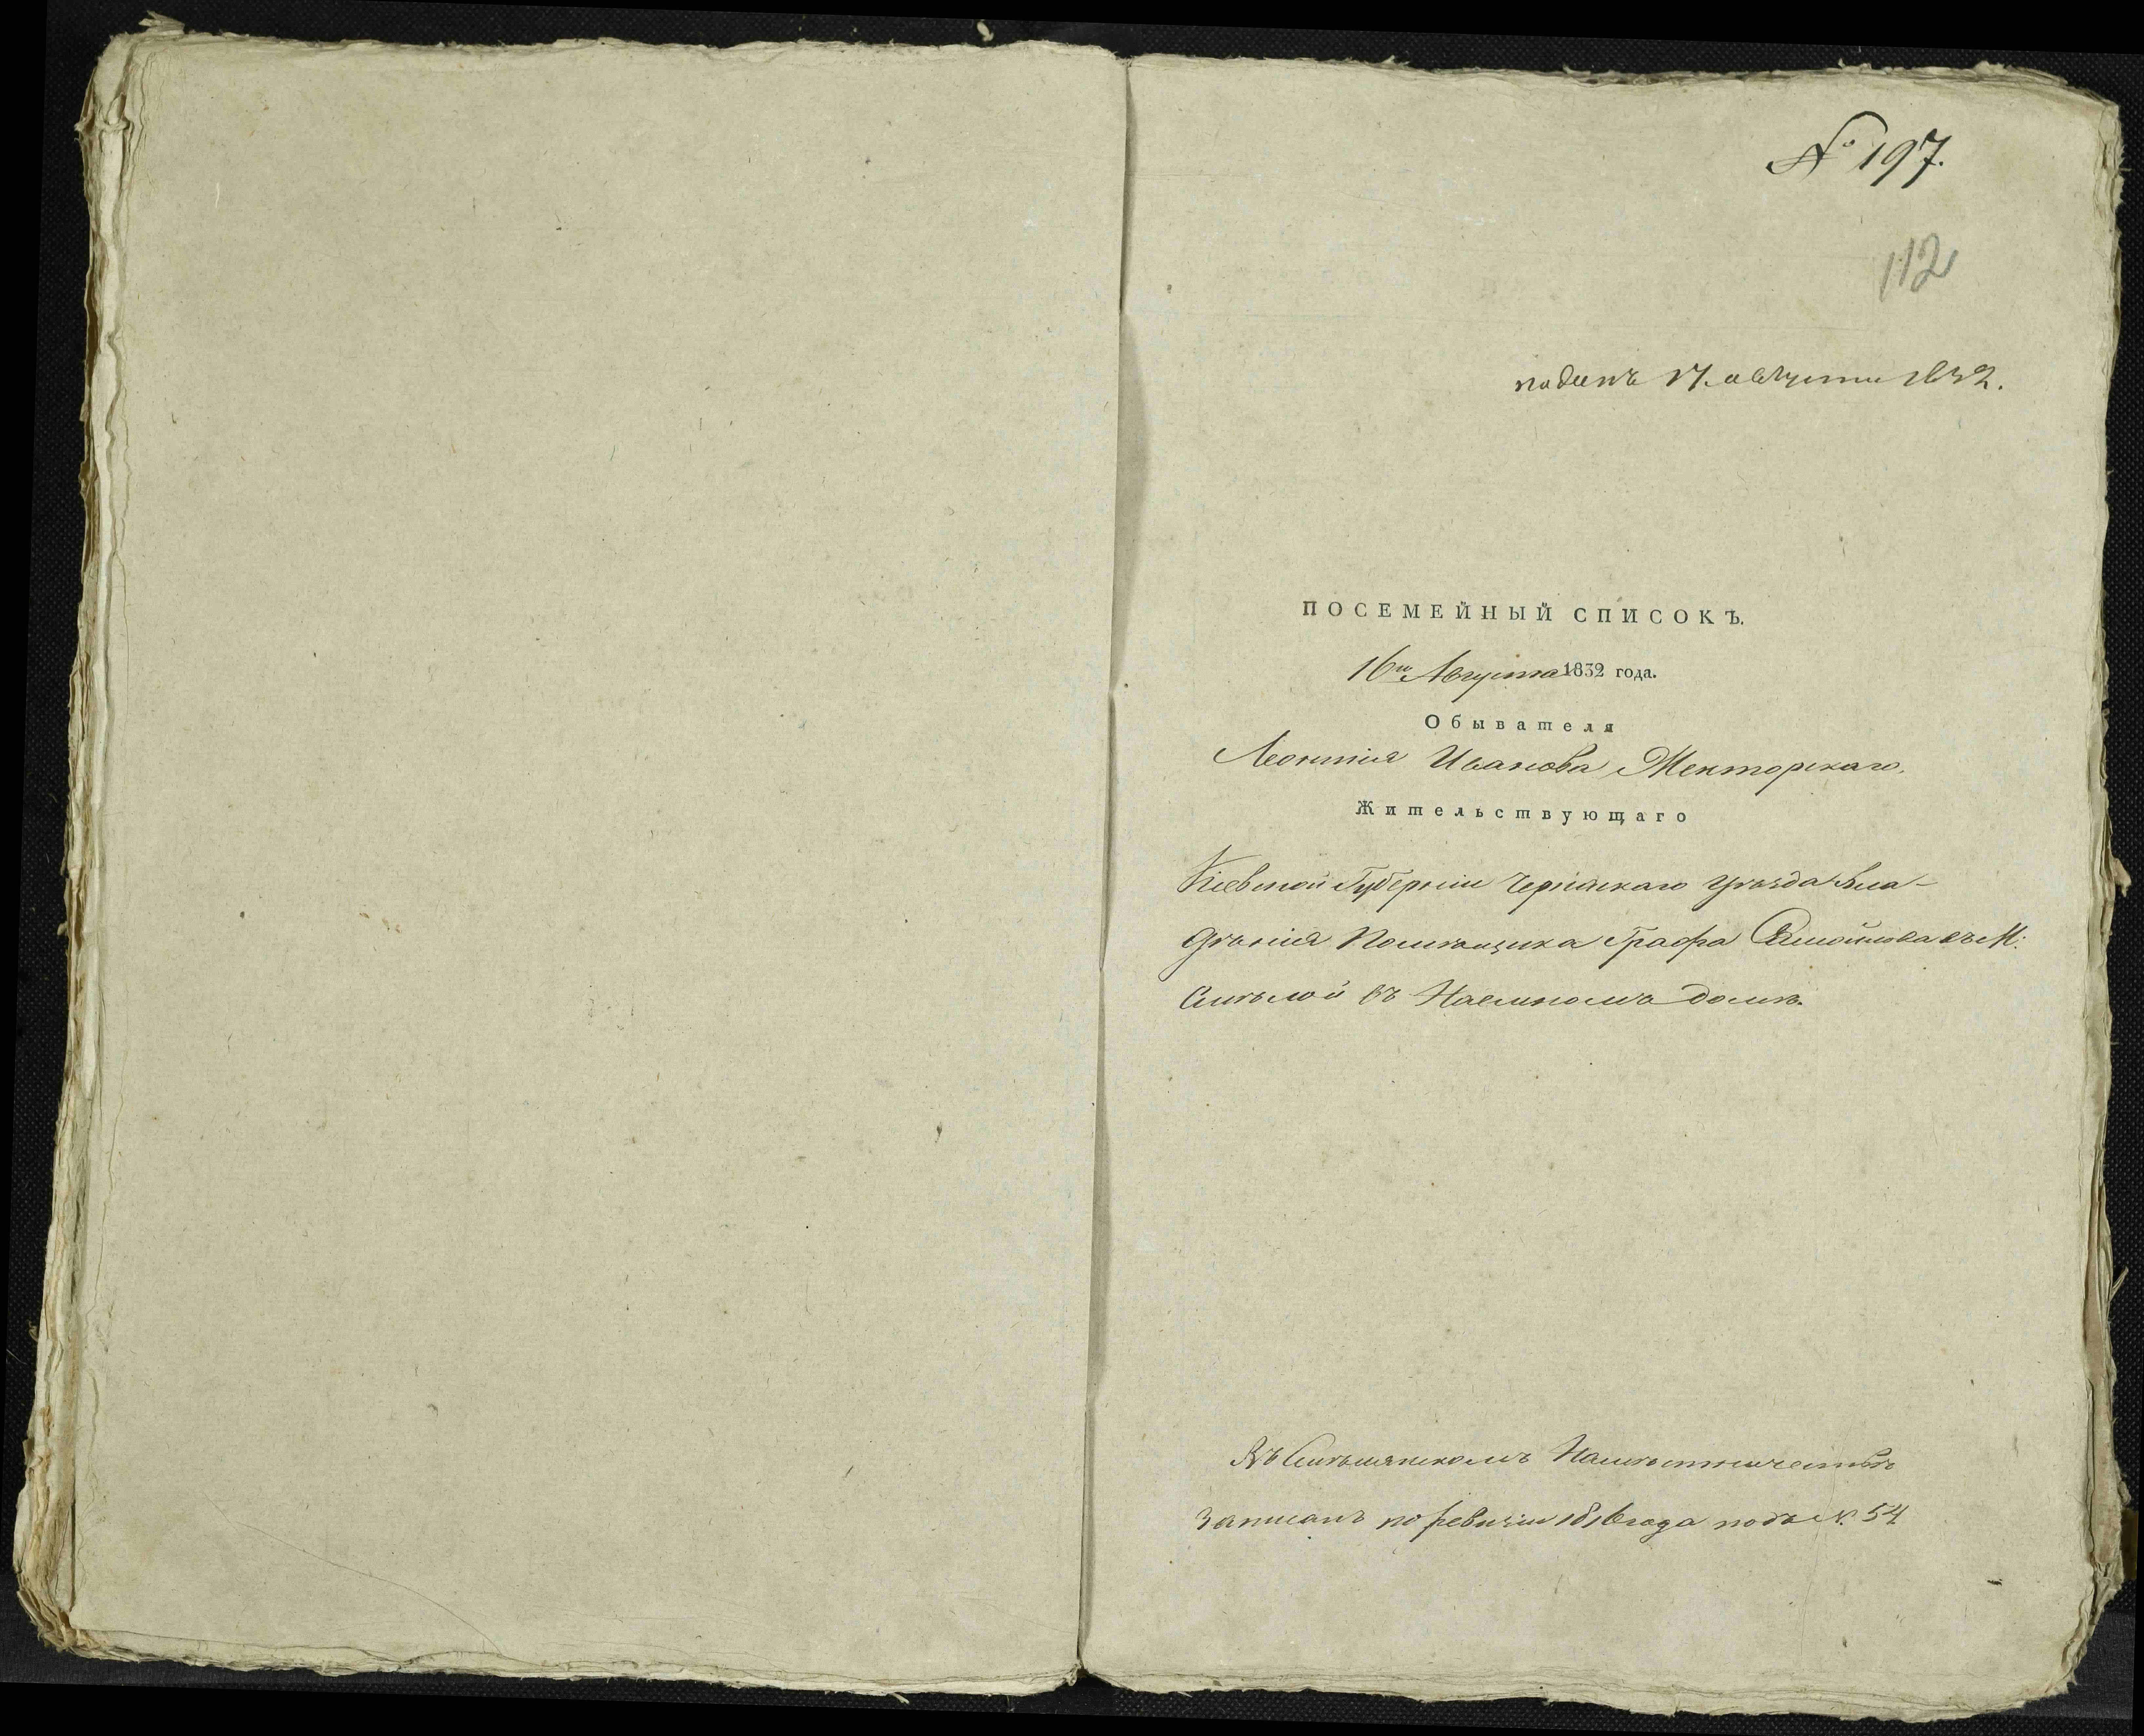 № 197.
112
поданъ 17. августа 1832.
ПОСЕМЕЙНЫЙ СПИСОКЪ.
16го Августа 1832 года.
Обывателя
Леонтія Иванова Менторскаго.
Жительствующаго
Кіевской Губерніи Черкаскаго уѣзда Вла-
дѣнія Помѣщика Графа Самойлова въ М:
Смѣлой въ Наемномъ домѣ.
Въ Смѣлянскомъ Намѣстничествѣ
записанъ по ревизіи 1816 года подъ №. 54